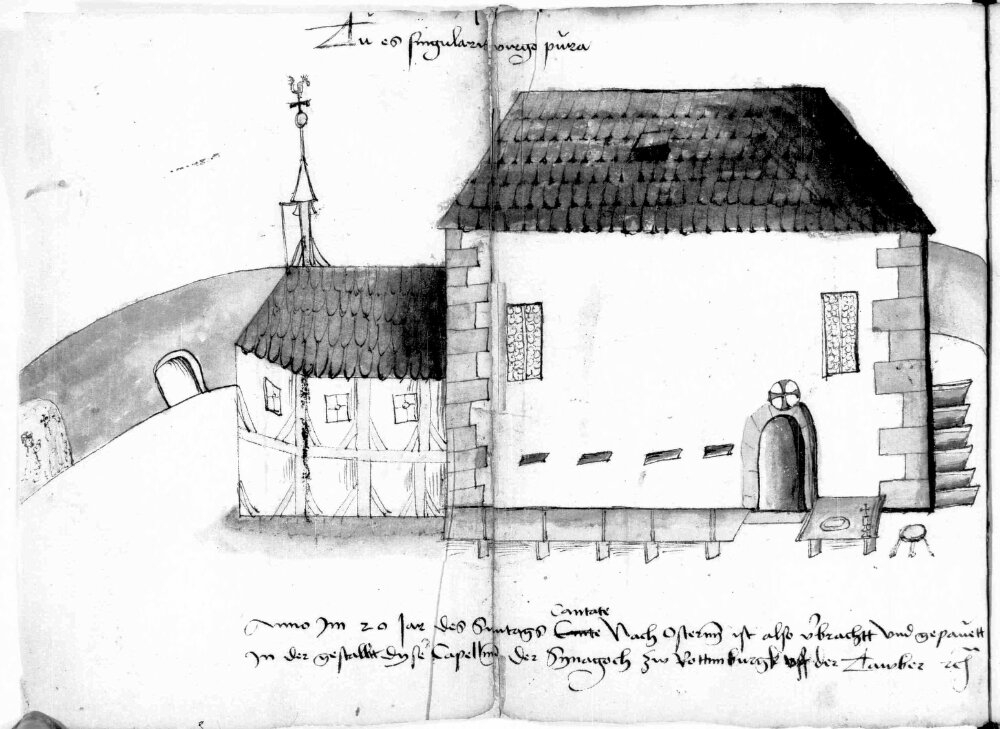 Tu es singularis virgo pura
Cantate
Anno Jm 20 Jar des Suntags Nach Ostern ist also vbrachtt vnd gepauett
Jn der gestalltt dyse Capellen der Synagoch zw Rottinburgk vff der Tauber